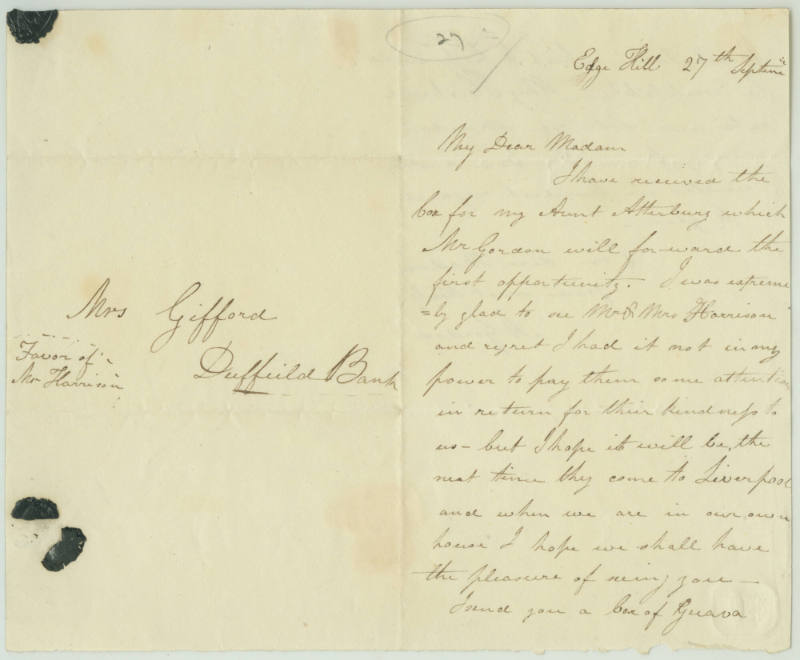 27
Edge Hill 27th Septem
My Dear Madam
I have received the
box for my Aunt Atterbury which
Mr Gordon will for-ward the
first opportunity. I was extreme
=ly glad to see Mr & Mrs Harrison
and regret I had it not in my
power to pay them some attention
in return for their kindness to
us - but I hope it will be the
next time they come to Liverpool
and when we are in our own
house I hope we shall have
the pleasure of seeing you -
I send you a box of Guava
Mrs Gifford
Duffield Bank
Favor of
Mr Harrison